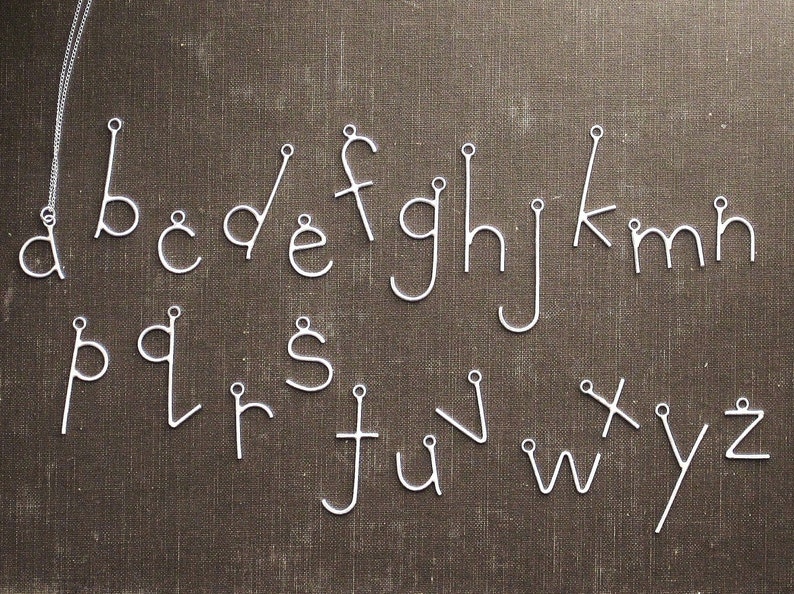 abcdefghjkmn
pqrstuvwxyz